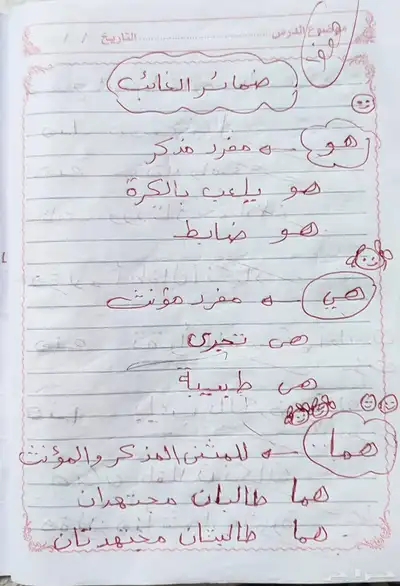 موضوع الدرس ............ التاريخ / /
ضمائر الغائب
هو ← مفرد مذكر
هو يلعب بالكرة
هو ضابط
هي ← مفرد مؤنث
هى تجرى
هى طبيبة
هما ← للمثنى المذكر والمؤنث
هما طالبان مجتهدان
هما طالبتان مجتهدتان